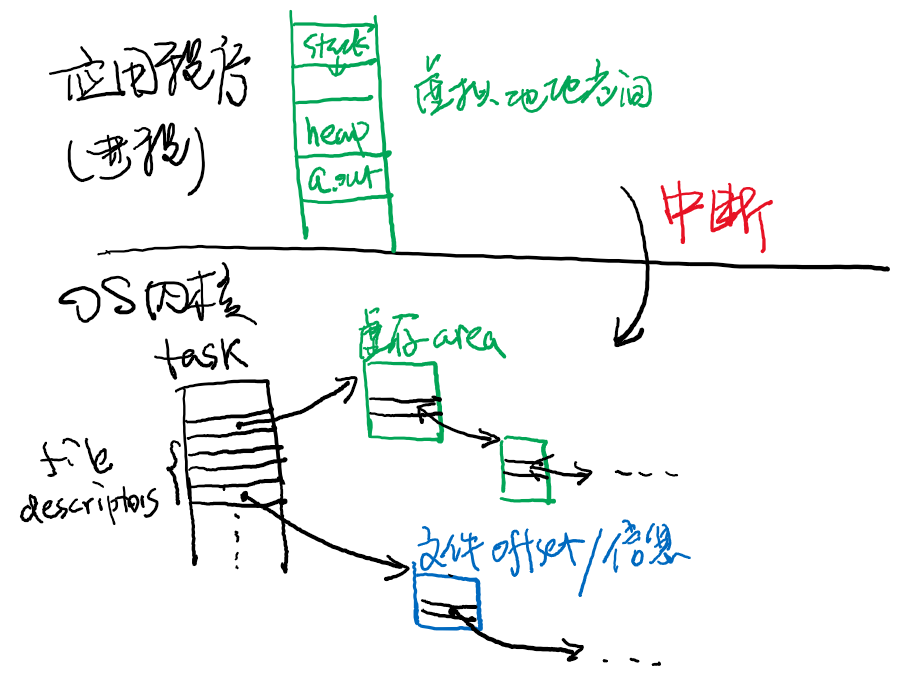 应用程序
(进程)
stack
heap
a.out
虚拟地址空间
中断
OS内核
task
file
descriptors
虚存area
...
文件offset/信息
...